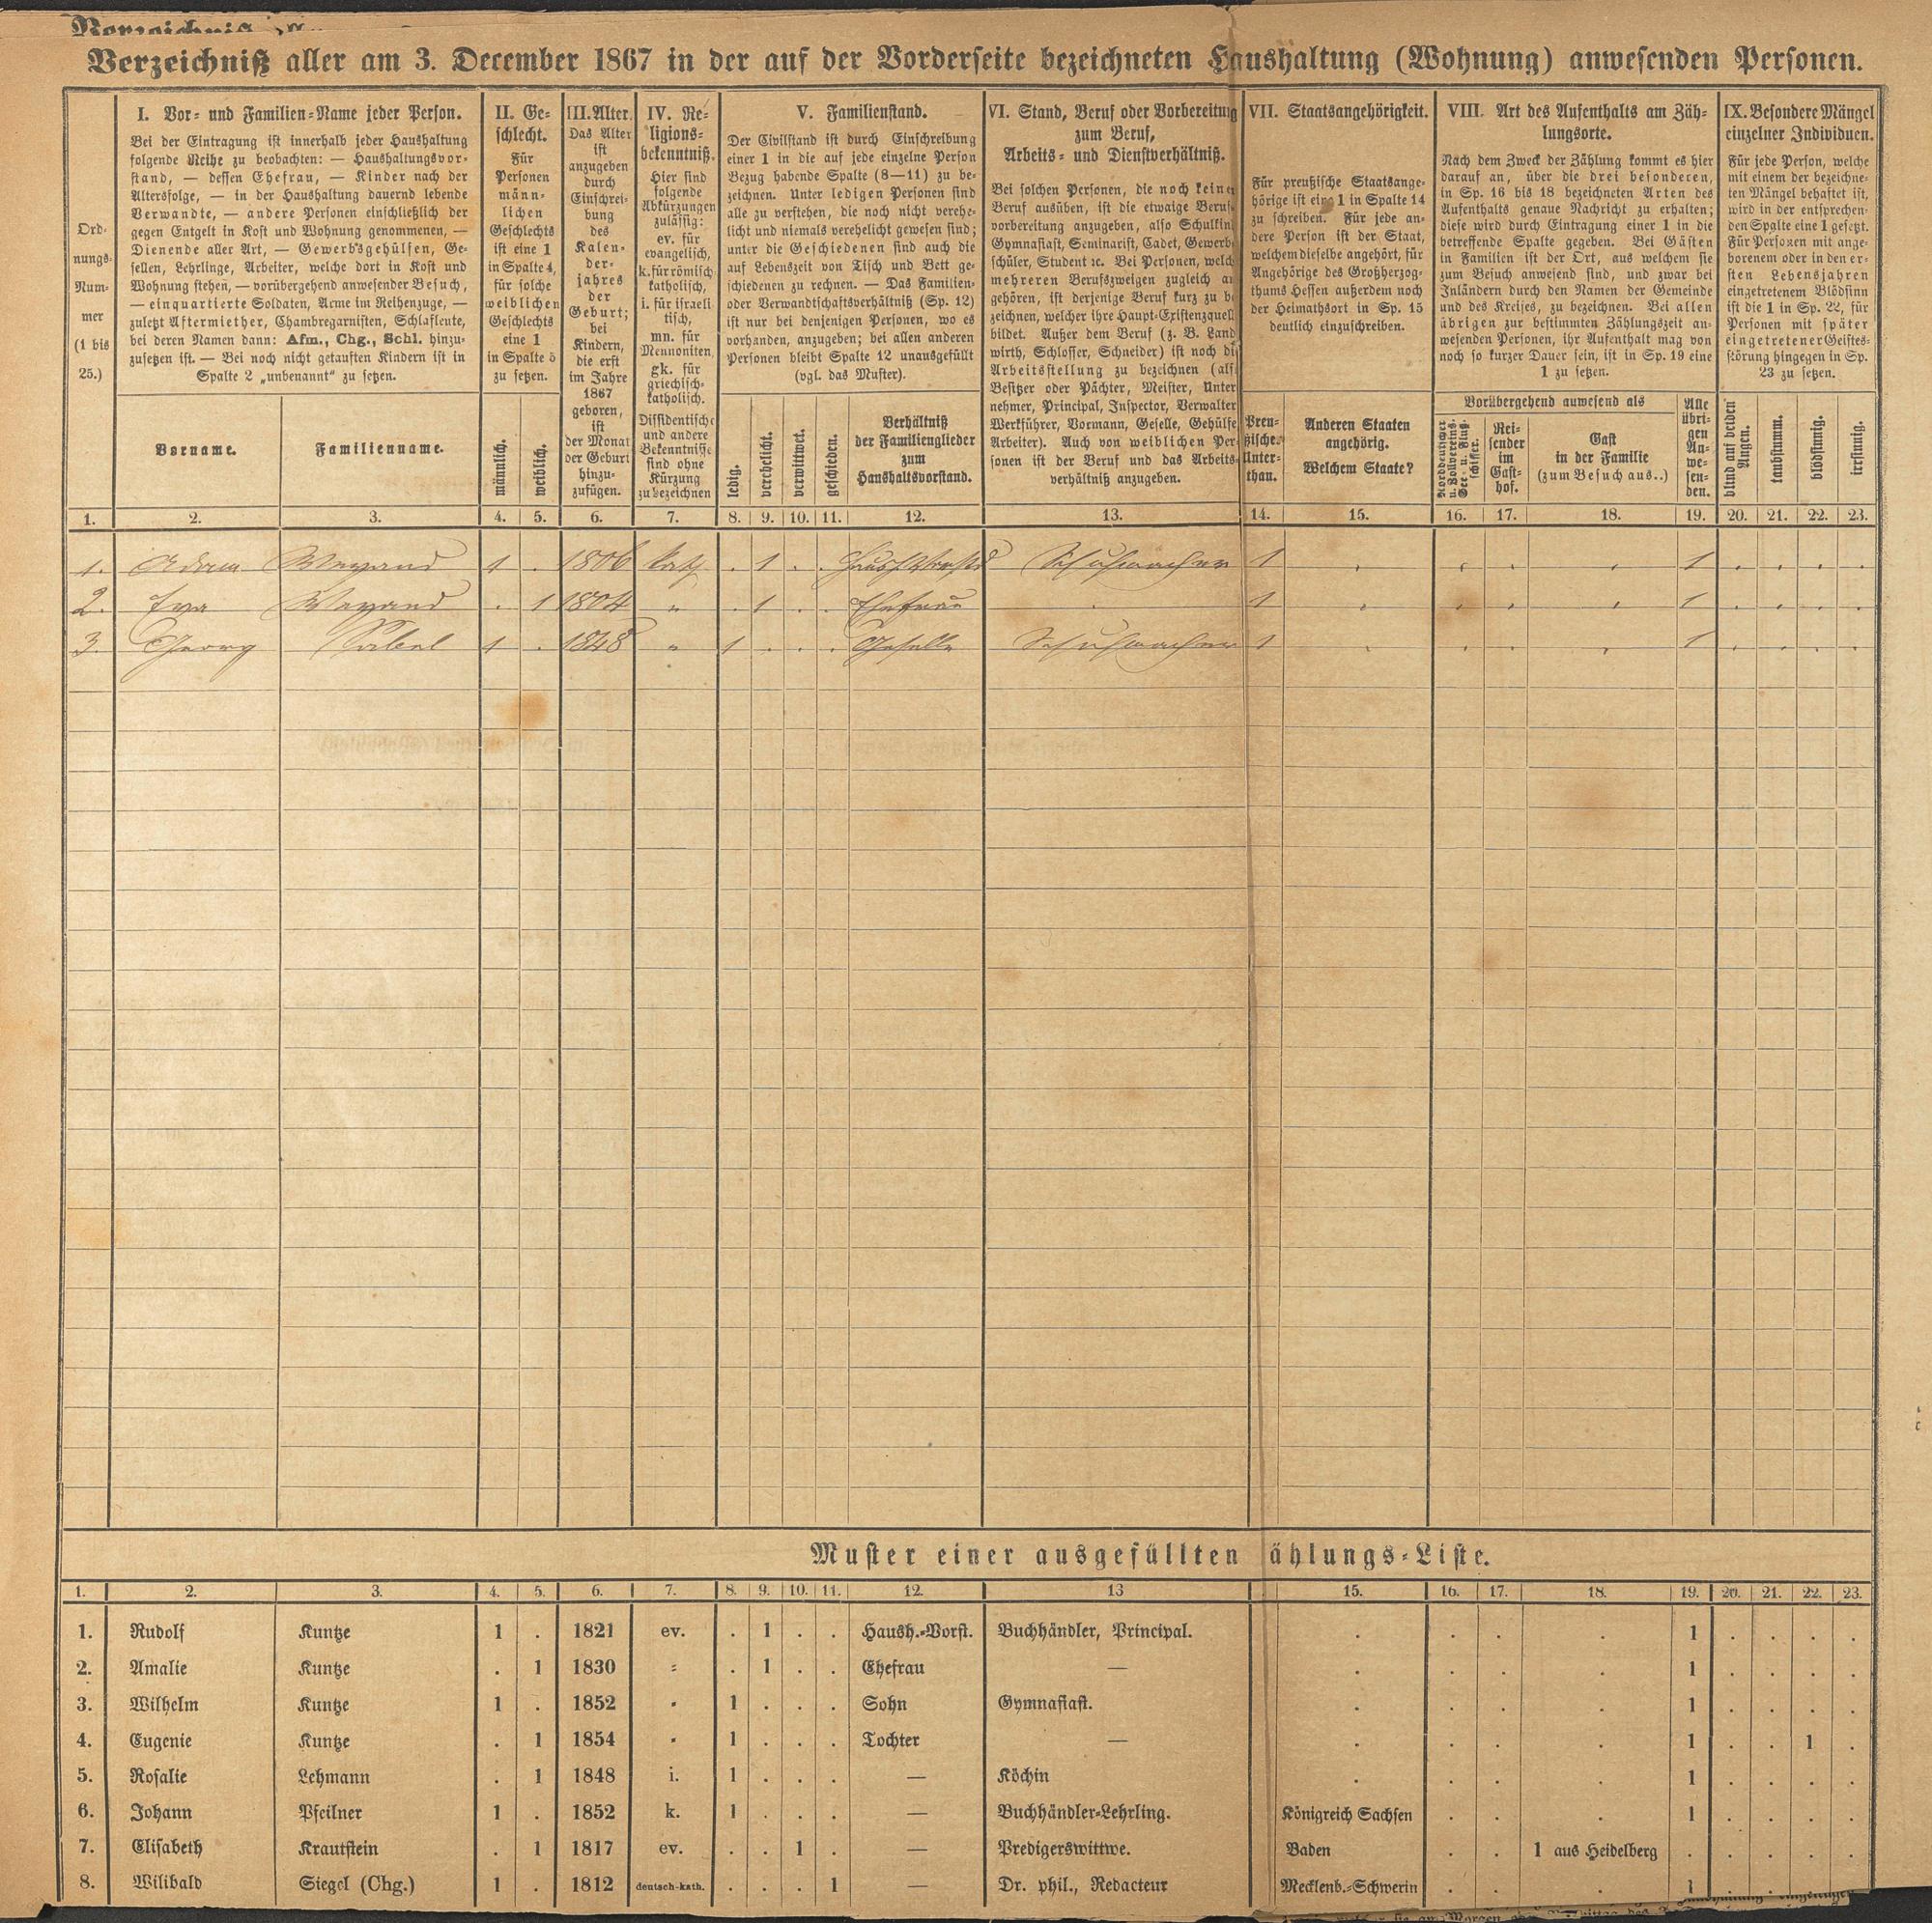 Verzeichniß aller am 3. December 1867 in der auf der Vorderseite bezeichneten Haushaltung (Wohnung) anwesenden Personen.
Ord-
nungs-
Num-
mer
(1 bis
25.)
I. Vor- und Familien-Name jeder Person.
Bei der Eintragung ist innerhalb jeder Haushaltung
folgende Reihe zu beobachten: — Haushaltungsvor-
stand, — dessen Ehefrau, — Kinder nach der
Altersfolge, — in der Haushaltung dauernd lebende
Verwandte, — andere Personen einschließlich der
gegen Entgelt in Kost und Wohnung genommenen, —
Dienende aller Art, — Gewerbsgehülfen, Ge-
sellen, Lehrlinge, Arbeiter, welche dort in Kost und
Wohnung stehen, — vorübergehend anwesender Besuch,
— einquartierte Soldaten, Arme im Reihenzuge, —
zuletzt Aftermiether, Chambregarnisten, Schlafleute,
bei deren Namen dann: Afm., Chg., Schl. hinzu-
zusetzen ist. — Bei noch nicht getauften Kindern ist in
Spalte 2 „unbenannt“ zu setzen.
Vorname.
Familienname.
II. Ge-
schlecht.
Für
Personen
männ-
lichen
Geschlechts
ist eine 1
in Spalte 4,
für solche
weiblichen
Geschlechts
eine 1
in Spalte 5
zu setzen.
männlich.
weiblich.
III. Alter.
Das Alter
ist
anzugeben
durch
Einschrei-
bung
des
Kalen-
der-
jahres
der
Geburt;
bei
Kindern,
die erst
im Jahre
1867
geboren,
ist
der Monat
der Geburt
hinzu-
zufügen.
IV. Re-
ligions-
bekenntniß.
Hier sind
folgende
Abkürzungen
zulässig:
ev. für
evangelisch,
k. für römisch-
katholisch,
i. für israeli
tisch,
mn. für
Mennoniten,
gk. für
griechisch-
katholisch.
Dissidentische
und andere
Bekenntnisse
sind ohne
Kürzung
zu bezeichnen
V. Familienstand.
Der Civilstand ist durch Einschreibung
einer 1 in die auf jede einzelne Person
Bezug habende Spalte (8—11) zu be-
zeichnen. Unter ledigen Personen sind
alle zu verstehen, die noch nicht verehe-
licht und niemals verehelicht gewesen sind;
unter die Geschiedenen sind auch die
auf Lebenszeit von Tisch und Bett ge-
schiedenen zu rechnen. — Das Familien-
oder Verwandtschaftsverhältniß (Sp. 12)
ist nur bei denjenigen Personen, wo es
vorhanden, anzugeben; bei allen anderen
Personen bleibt Spalte 12 unausgefüllt
(vgl. das Muster).
ledig.
verehelicht.
verwittwet.
geschieden.
Verhältniß
der Familienglieder
zum
Haushaltsvorstand.
VI. Stand, Beruf oder Vorbereitung
zum Beruf,
Arbeits- und Dienstverhältniß.
Bei solchen Personen, die noch keinen
Beruf ausüben, ist die etwaige Berufs-
vorbereitung anzugeben, also Schulkind
Gymnasiast, Seminarist, Cadet, Gewerb-
schüler, Student ec. Bei Personen, welche
mehreren Berufszweigen zugleich an
gehören, ist derjenige Beruf kurz zu be
zeichnen, welcher ihre Haupt-Existenzquelle
bildet. Außer dem Beruf (z. B. Land
wirth, Schlosser, Schneider) ist noch die
Arbeitsstellung zu bezeichnen (als
Besitzer oder Pächter, Meister, Unter
nehmer, Principal, Inspector, Verwalter
Werkführer, Vormann, Geselle, Gehülfe
Arbeiter). Auch von weiblichen Per-
sonen ist der Beruf und das Arbeits-
verhältniß anzugeben.
VII. Staatsangehörigkeit.
Für preußische Staatsange-
hörige ist eine 1 in Spalte 14
zu schreiben. Für jede an-
dere Person ist der Staat,
welchem dieselbe angehört, für
Angehörige des Großherzog-
thums Hessen außerdem noch
der Heimathsort in Sp. 15
deutlich einzuschreiben.
Preu-
ßischer
Unter-
than.
Anderen Staaten
angehörig.
Welchem Staate?
VIII. Art des Aufenthalts am Zäh-
lungsorte.
Nach dem Zweck der Zählung kommt es hier
darauf an, über die drei besonderen,
in Sp. 16 bis 18 bezeichneten Arten des
Aufenthalts genaue Nachricht zu erhalten;
diese wird durch Eintragung einer 1 in die
betreffende Spalte gegeben. Bei Gästen
in Familien ist der Ort, aus welchem sie
zum Besuch anwesend sind, und zwar bei
Inländern durch den Namen der Gemeinde
und des Kreises, zu bezeichnen. Bei allen
übrigen zur bestimmten Zählungszeit an-
wesenden Personen, ihr Aufenthalt mag von
noch so kurzer Dauer sein, ist in Sp. 19 eine
1 zu setzen.
Vorübergehend anwesend als
Norddeutscher
u. Zollvereins-
See- u. Fluß-
schiffer.
Rei-
sender
im
Gast-
hof.
Gast
in der Familie
(zum Besuch aus..)
Alle
übri-
gen
An-
we-
sen-
den.
IX. Besondere Mängel
einzelner Individuen.
Für jede Person, welche
mit einem der bezeichne-
ten Mängel behaftet ist,
wird in der entsprechen-
den Spalte eine 1 gesetzt.
Für Personen mit ange-
borenem oder in den er-
sten Lebensjahren
eingetretenem Blödsinn
ist die 1 in Sp. 22, für
Personen mit später
eingetretener Geistes-
störung hingegen in Sp.
23 zu setzen.
blind auf beiden
Augen.
taubstumm.
blödsinnig.
irrsinnig.
1. 2. 3. 4. 5. 6. 7. 8. 9. 10. 11. 12. 13. 14. 15. 16. 17. 18. 19. 20. 21. 22. 23.
1. Adam Weyand 1 . 1806 kath. . 1 . . Haush.Vorstd Schuhmacher 1 . . . . 1 . . . .
2. Eva Weyand . 1 1804 " . 1 . . Ehefrau . 1 . . . . 1 . . . .
3. Georg Sabel 1 . 1848 " 1 . . . Geselle Schuhmacher 1 . . . . 1 . . . .
Muster einer ausgefüllten ählungs-Liste.
1. 2. 3. 4. 5. 6. 7. 8. 9. 10. 11. 12. 13 15. 16. 17. 18. 19. 20. 21. 22. 23.
1. Rudolf Kuntze 1 . 1821 ev. . 1 . . Haush.-Vorst. Buchhändler, Principal. . . . . 1 . . . .
2. Amalie Kuntze . 1 1830 " . 1 . . Ehefrau — . . . . 1 . . . .
3. Wilhelm Kuntze 1 . 1852 " 1 . . . Sohn Gymnasiast. . . . . 1 . . . .
4. Eugenie Kuntze . 1 1854 " 1 . . . Tochter — . . . . 1 . . 1 .
5. Rosalie Lehmann . 1 1848 i. 1 . . . — Köchin . . . . 1 . . . .
6. Johann Pfeilner 1 . 1852 k. 1 . . . — Buchhändler-Lehrling. Königreich Sachsen . . . 1 . . . .
7. Elisabeth Krautstein . 1 1817 ev. . . 1 . — Predigerswittwe. Baden . . 1 aus Heidelberg . . . . .
8. Wilibald Siegel (Chg.) 1 . 1812 deutsch-kath. . . . 1 — Dr. phil., Redacteur Mecklenb.-Schwerin . . . 1 . . . .